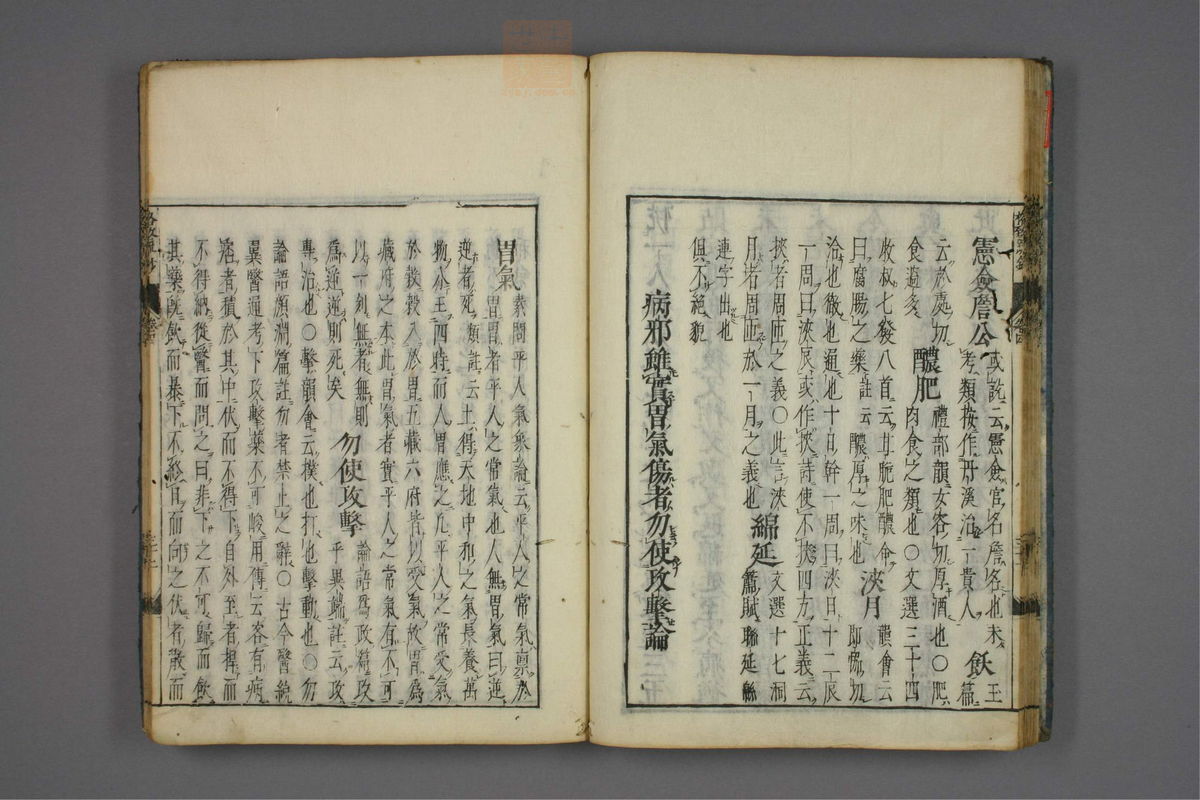 憲僉詹公 或說云憲僉官名詹名也未 玉
考類按作丹溪治一貴人 飫 篇
云於處切 醲肥 禮部韻女容切厚酒也○肥
食過多 肉食之類也○文選三十四
枚叔七發八首云甘脆肥醲命 浹月 韻會云
曰腐腸之藥註云醲厚之味也 即協切
洽也徹也通也十日幹一周曰浹日十二辰
一周曰浹辰或作挾詩使不挾四方正義云
挾者周匝之義○此言浹
月者周匝於一月之義也 綿延 文選十七洞
簫賦聯延
連字出也
俱不絕貌
病邪雖實胃氣傷者勿使攻擊論
胃氣 素問平人氣象論云平人之常氣禀於
胃胃者平人之常氣也人無胃氣曰逆
逆者死類註云土得天地中和之氣長養萬
物分王四時而人胃應之凡平人之常受氣
於穀穀入於胃五藏六府皆以受氣故胃為
藏府之本此胃氣者實平人之常氣有不可
以一刻無者無則 勿使攻擊 論語為政篇攻
為逆逆則死矣 乎異端註云攻
專治也○擊韻會云撲也打也擊動也○勿
論語顏淵篇註勿者禁止之辭○古今醫統
翼醫通考下攻擊藥不可峻用傳云客有病
痞者積於其中伏而不得下自外至者捍而
不得納從醫而問之曰非下之不可歸而飲
其藥既飲而暴下不終日而向之伏者散而